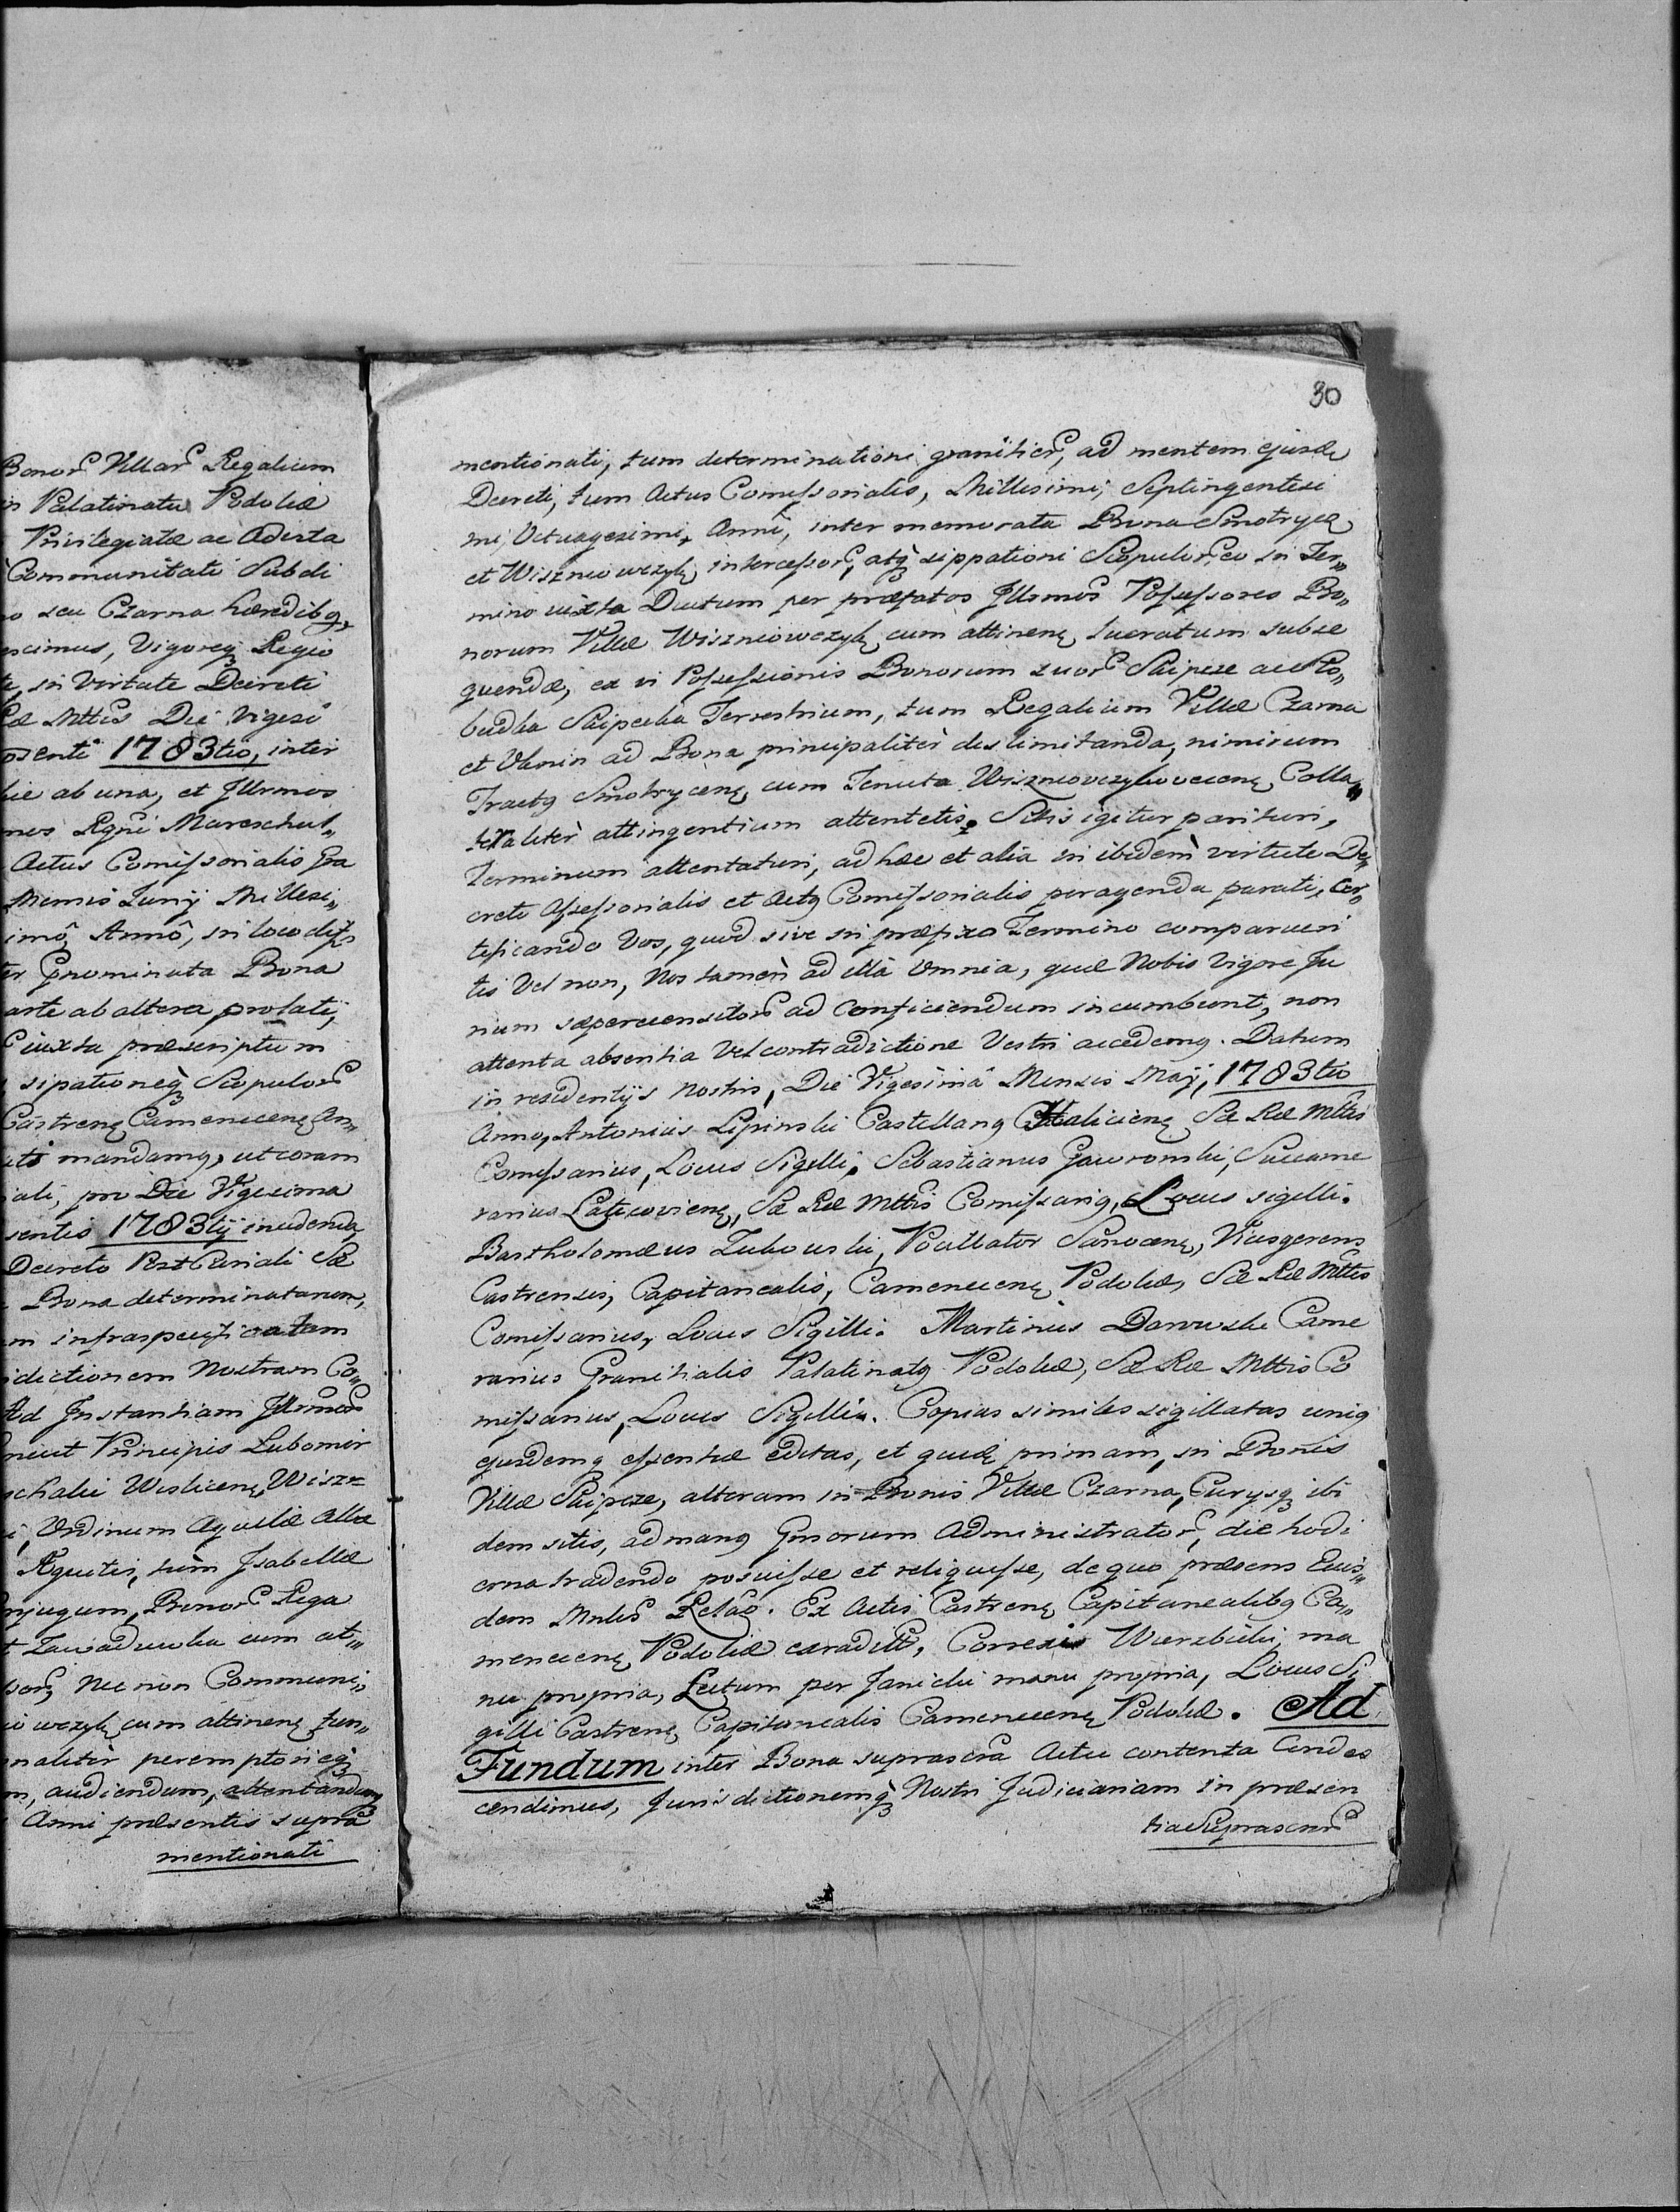 Bonorꝰ Villarꝰ Regalium
in Palatinatu Podoliæ
Privilegiatæ ac Adicta
Communitati Subdi
no seu Czarna hæredibꝰ,
encimus, Vigoreqꝫ Regio
te, in Virtute Decreti
Mttis Die Vigesi
senti 1783tio, inter
ab una, et Illrmos
nos Regni Mareschal„
Actus Comissorialis Gra
Mensis Junij Millesi„
imô, Annô, in loco
Gnominata Bona
arte ab altera prolatij,
iuxta præscriptum
sipationeqꝫ Scopulorꝰ
Castrenꝫ Camenecenꝫ An„
mandamꝰ, ut coram
iali, pro Die Vigesima
sentis 1783tij incidenda,
Decreto Post Curiali Sæ
Bona determinatarum,
m infraspecificatam
dictionem Nostram Co„
Ad Instantiam Illrmorꝰ
Principis Lubomir
schalii Wisliceñ, Wisz=
Ordinum Aquilæ Albæ
Equitis, tum Isabellæ
onjugum, Bonorꝰ Rega
cum at„
Nec non Communi„
wczyk cum attinenꝫ fun„
naliter peremptorieqꝫ
m, audiendum, attentandum
Anni præsentis supra
mentionati
30
mentionati, tum determinationi granitierꝰ, ad mentem ejusde
Decreti, tum Actus Comissorialis, Millesimi, Septingentesi
mi, Octuagesimi, Anni, inter memorata Bona Smotrycz
et Wiszniowczyk intercessorꝰ, atqꝫ sippationi Scopulorꝰ, eo in Ter„
mino iuxta Ductum per præfatos Illrmos Possessores Bo„
norum Villæ Wiszniowczyk cum attinenꝫ tueratum subse
quendæ, ex vi Possessionis Bonorum suorꝰ Skipcze ac Slo„
budka Skipecka Terrestrium, tum Regalium Villæ Czarna
et Uknin ad Bona principaliter deslimitanda, nimirum
Tractꝰ Smotrycenꝫ cum Tenuta Wiszniowczykoviecenꝫ Colla„
teraliter attingentium attentetis. Sitis igitur parituri,
Terminum attentaturi, ad hæc et alia in ibidem virtute De„
creti Assessorialis et Actꝰ Comissorialis peragenda parati, Cer„
tificando Vos, quod sive in præfixo Termino comparueri
tis Vel non, Nos tamen ad illa Omnia, quæ Nobis Vigore Ju
rium superrecensitorꝰ ad conficiendum incumbunt, non
attenta absentia Vel contradictione Vestri accedemꝰ. Datum
in residentijs Nostris, Die Vigesima Mensis Maij, 1783tio
Anno, Antonius Lipinski Castellanꝰ Halicienꝫ Sæ Ræ Mttis
Comissarius, Locus Sigilli. Sebastianus Gawronski, Succame
rarius Laticovienꝫ, Sæ Ræ Mttis Comissariꝰ, Locus sigilli.
Bartholomæus Zukowski, Pocillator Sanocenꝫ, Vicesgerens
Castrensis, Capitanealis, Camenecenꝫ Podoliæ, Sæ Ræ Mttis
Comissarius, Locus Sigilli. Martinus Darowski Came
rarius Granitialis Palatinatꝰ Podoliæ, Sæ Ræ Mttis Co
missarius, Locus Sigilli. Copias similes sigillatas uniꝰ
ejusdemqꝫ essentiæ editas, et quidꝫ primam, in Bonis
Villæ Skipcze, alteram in Bonis Villæ Czarna, Curysqꝫ ibi
dem sitis, ad manꝰ Gnorum Administratorꝰ, die hodi
erna tradendo posuisse et reliquisse, de quo præsens Ejus„
dem Mnlis Relaõ. Ex Actis Castrenꝫ Capitanealibꝰ Ca„
menecenꝫ Podoliæ extraditt, Correxit Wierzbicki, ma
nu propria, Lectum per Janicki manu propria, Locus Si
gilli Castrenꝫ Capitanealis Camenecenꝫ Podoliæ. Ad
Fundum inter Bona suprascrã Actu contenta Condes
cendimus, Jurisdictionemqꝫ Nostri Judiciariam in præsen
tia Suprascrrꝰ